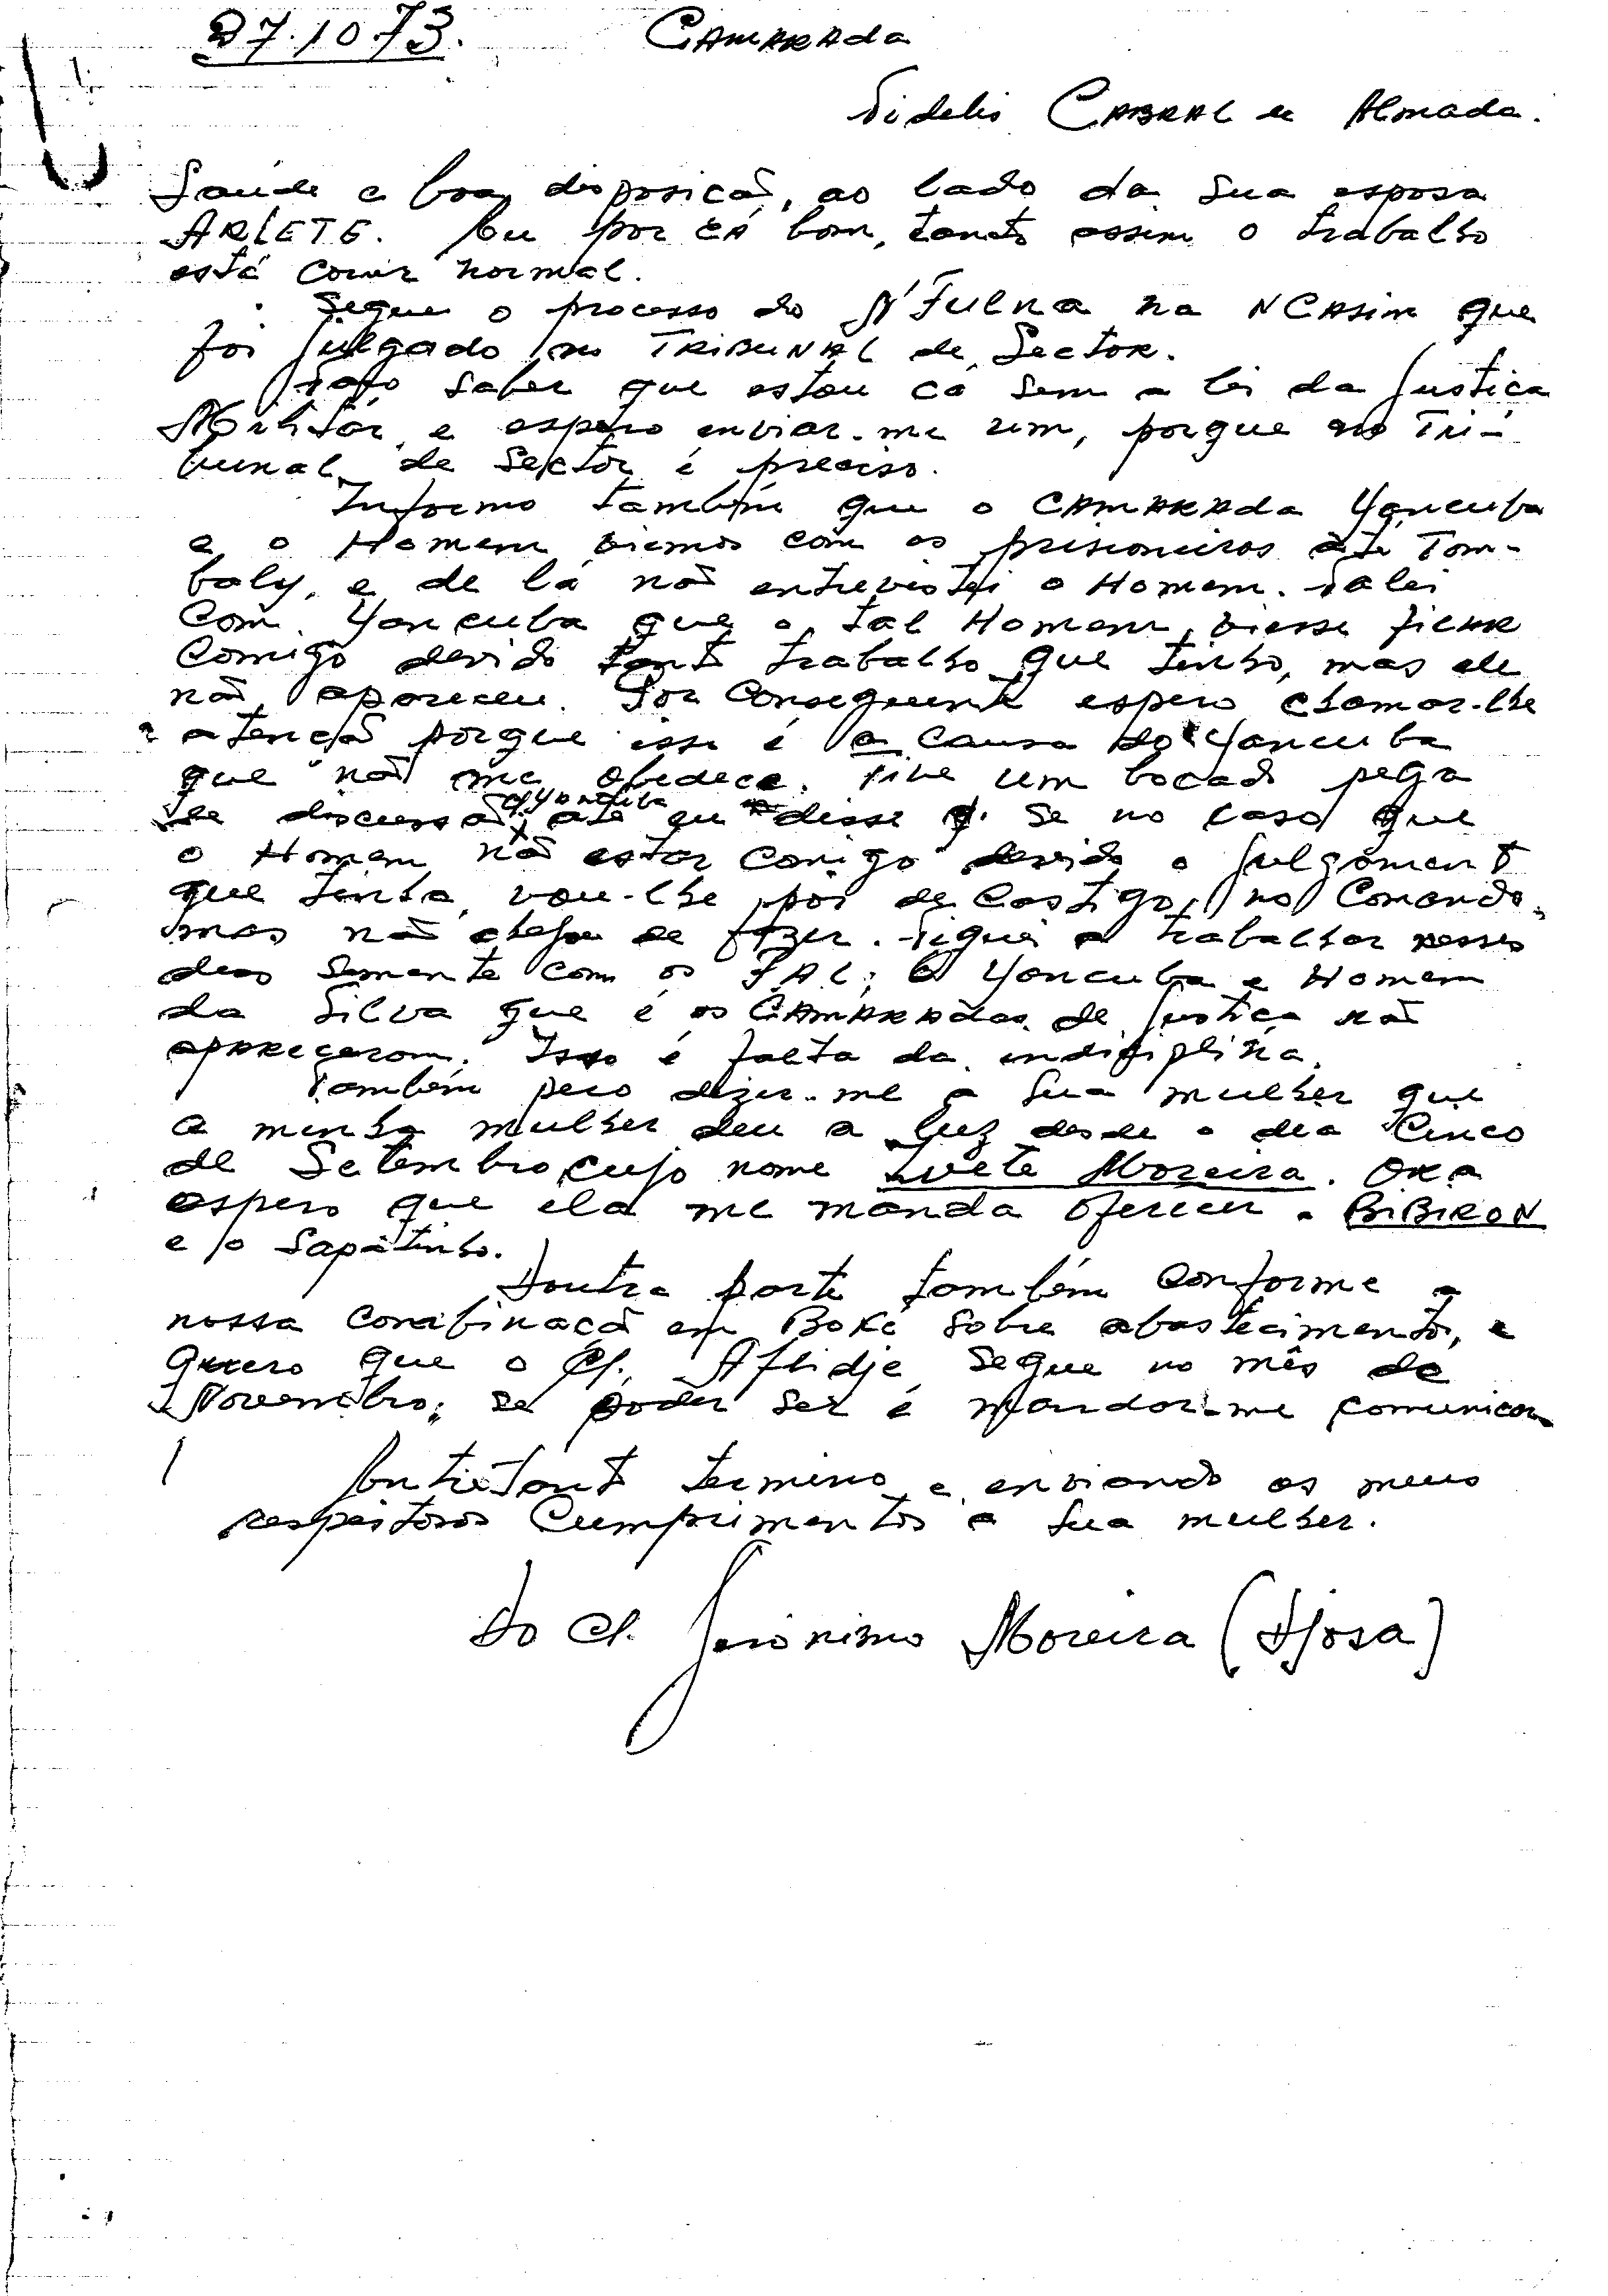 27.10.73. CAMARAda
Fidelis CABRAL de Almada.
Saúde e boa disposicão, ao lado da sua esposa
ARLETE. Eu por cá bom, tanto assim o trabalho
está corrir normal.
Segue o processo do N'FULNA na NCASim que
foi julgado no TRIBUNAL de Sector.
Faço saber que estou cá sem a lei da Justiça
Militar, e espero enviar-me um, porque no Tri-
bunal de Sector é preciso.
Informo também que o CAMARAda Yoncuba
e o Homem viemos com os prisioneiros até Tom-
baly, e de lá não entrevistei o Homem. Falei
com Yoncuba que o tal Homem, viesse ficar
comigo devido tanto trabalho que tinho, mas ele
não apareceu. Por conseguente espero chamar-lhe
a atenção porque isso é a causa do Yoncuba
que não me obedece. Tive um bocado pega
de discussão c/Yoncuba até eu disse q. se no caso que
o Homem não estar comigo devido o julgamento
que tinha, vou-lhe pôr de castigo no Comando,
mas não chegou de fazer. Fiquei a trabalhar nesses
dias somente com os FAL; O Yoncuba e Homem
da Silva que é os CAMARAdas de justiça não
apareceram. Isso é falta da indisiplina.
Também peço dizer-me a sua mulher que
a minha mulher deu a luz desde o dia Cinco
de Setembro, cujo nome Ivete Moreira. ORA
espero que ela me manda oferecer o BIBIRON
e o Sapatinho.
Doutra parte também conforme a
nossa combinacão em Boké sobre abastecimento, e
quero que o Cf. Aflidje segue no mês de
Novembro; se poder ser é mandar-me comunicar
Entretanto termino e enviando os meus
respeitosos Cumprimentos a sua mulher.
Do Cf. Jerónimo Moreira (Djosa)